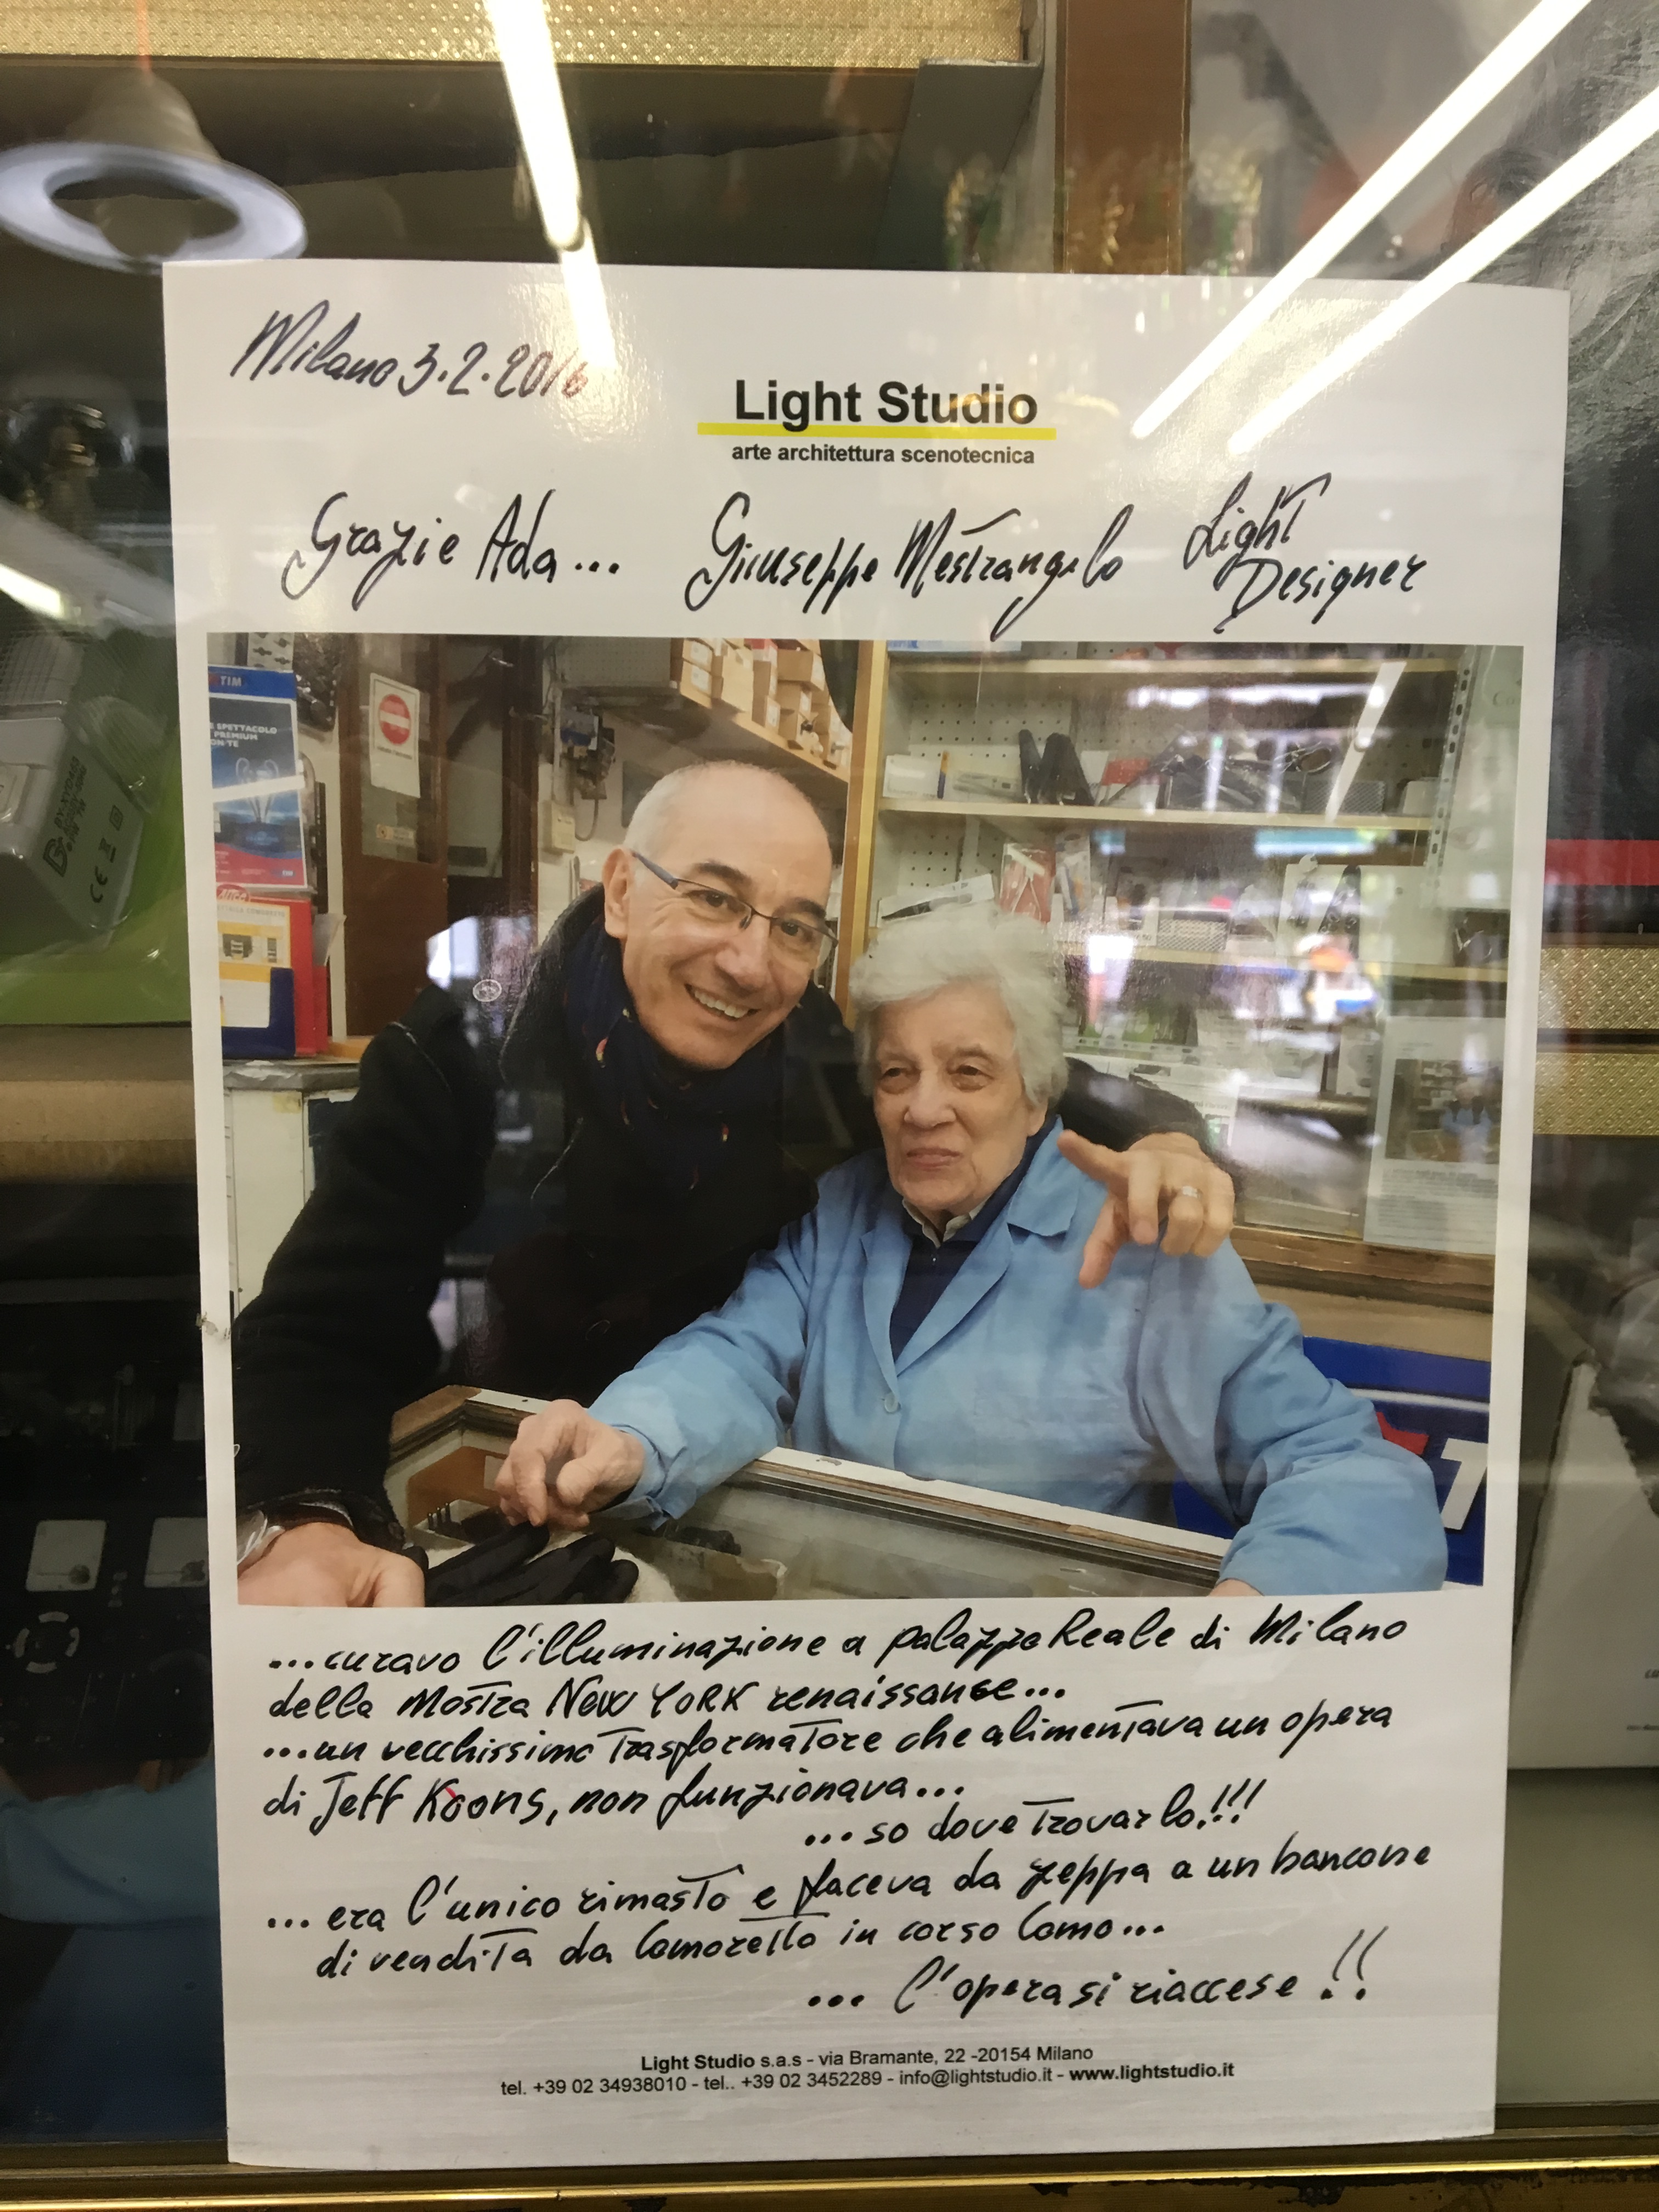 Milano 3.2.2016
Light Studio
arte architettura scenotecnica
Grazie Ada... Giuseppe Mestrangelo Light
Designer
TIM
SPETTACOLO
PREMIUM
CON TE
...curavo l'illuminazione a palazzo Reale di Milano
della Mostra New YORK renaissanse...
...un vecchissimo Trasformatore che alimentava un opera
di Jeff Koons, non funzionava...
...so dove Trovarlo!!!
... era l'unico rimasto e faceva da zeppa a un bancone
di vendita da Comoretto in corso Como...
... l'opera si riaccese!!
Light Studio s.a.s - via Bramante, 22 -20154 Milano
tel. +39 02 34938010 - tel.. +39 02 3452289 - info@lightstudio.it - www.lightstudio.it
CE